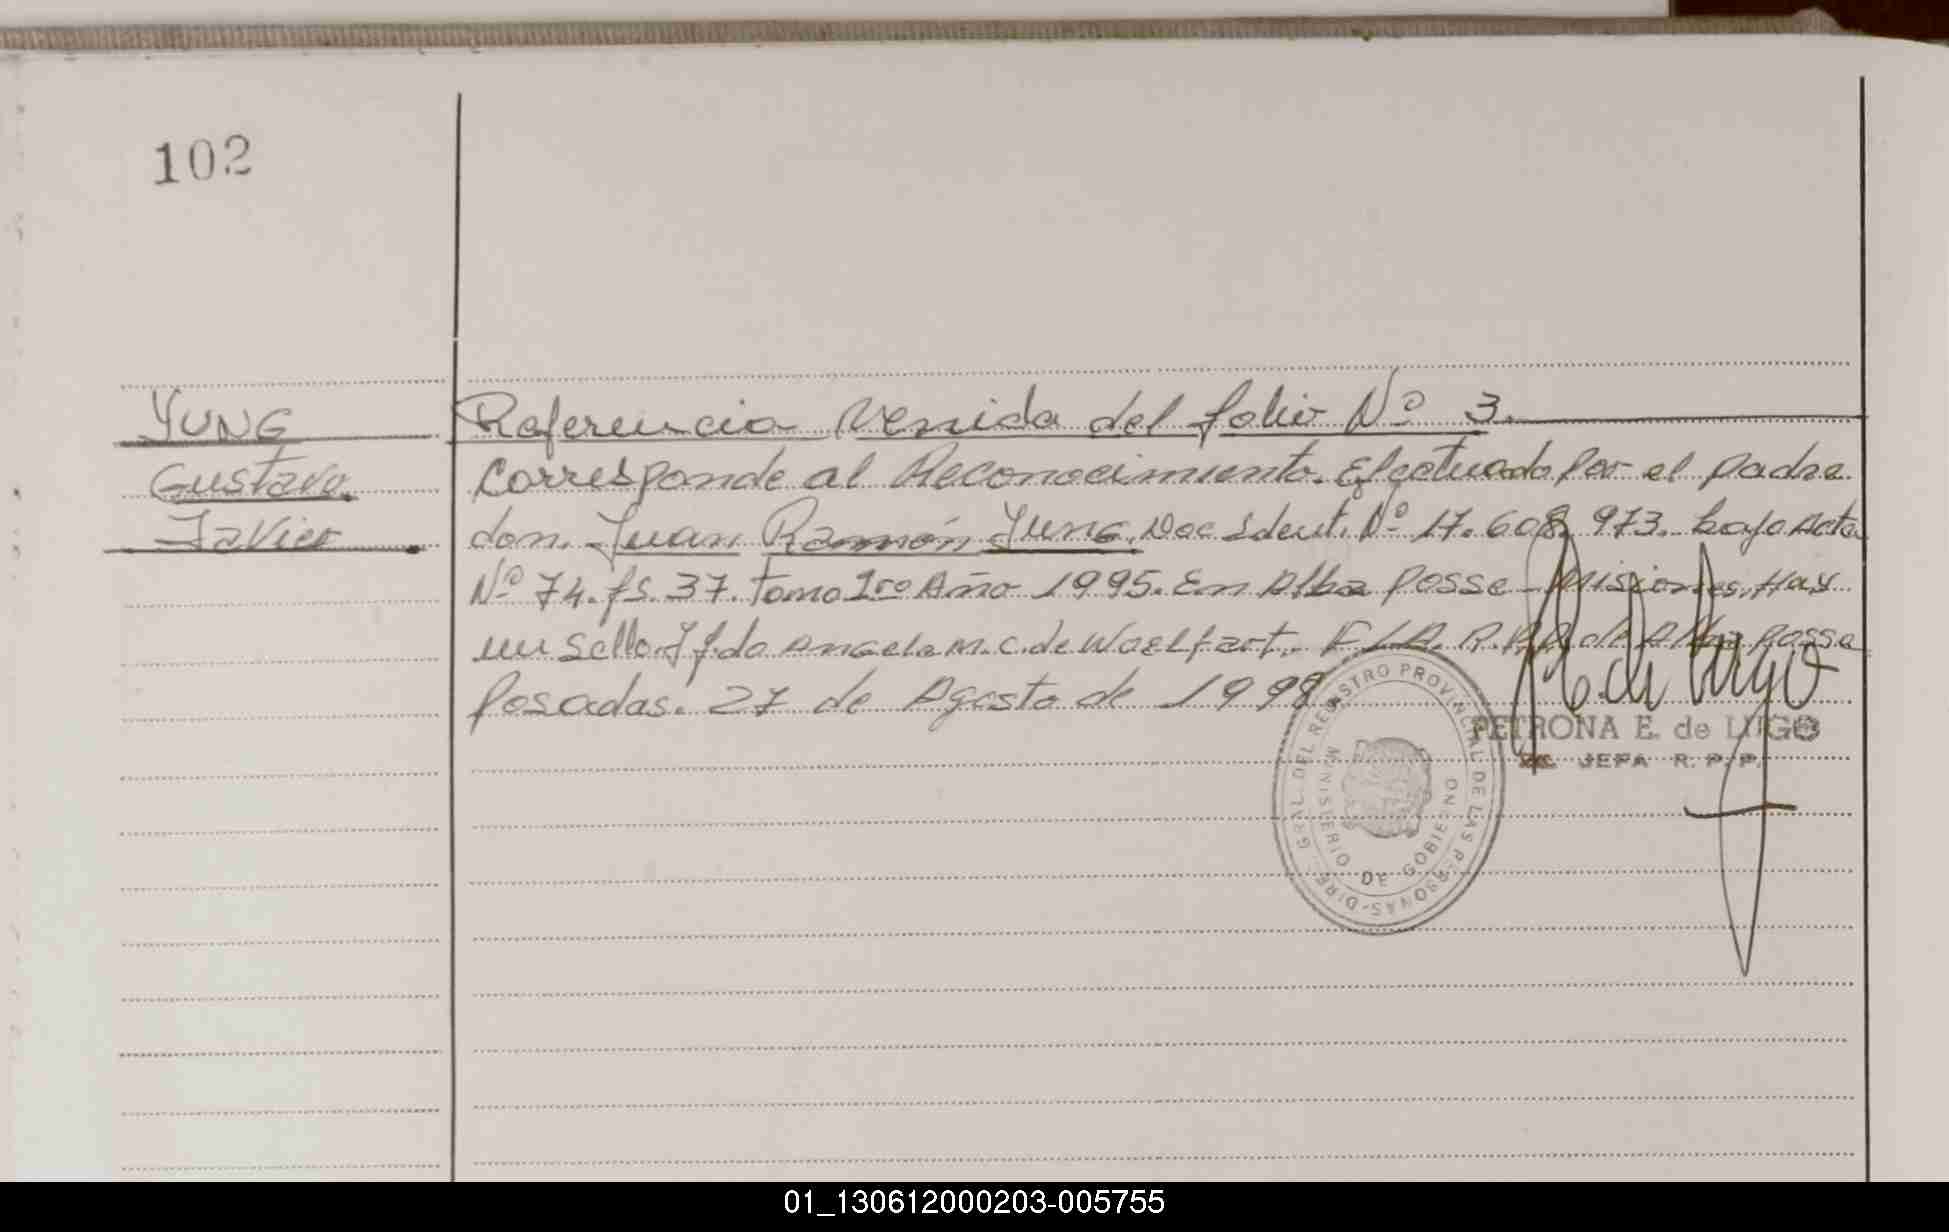 102
YUNG
Gustavo
Javier
Referencia Venida del folio Nº 3.
Corresponde al Reconocimiento. Efectuado por el padre
don. Juan Ramón Yung. Doc Ident. Nº 17.608.973. bajo Acta
Nº 74. fs. 37. Tomo 1ro Año 1995. En Alba Posse - Misiones. Hay
un sello. Y f.do Angela M. C. de Woelfart. R.P.P. de Alba Posse
Posadas. 27 de Agosto de 1998
PETRONA E. de LUGO
JEFA R. P. P.
DIRE. GRAL. DEL REGISTRO PROVINCIAL DE LAS PERSONAS
MINISTERIO DE GOBIERNO
01_130612000203-005755